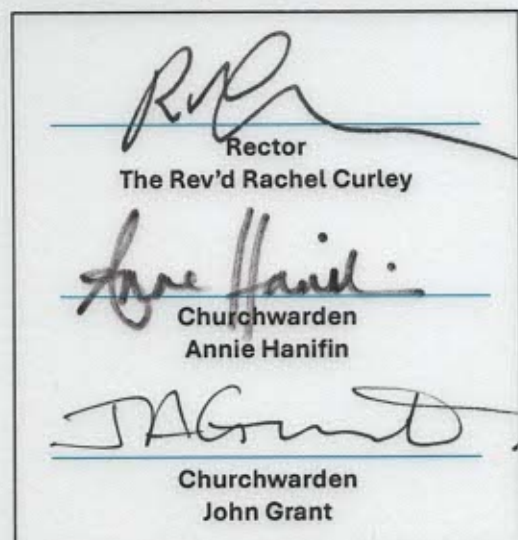 Rector
The Rev'd Rachel Curley
Anne Hanifi
Churchwarden
Annie Hanifin
JAGrant
Churchwarden
John Grant